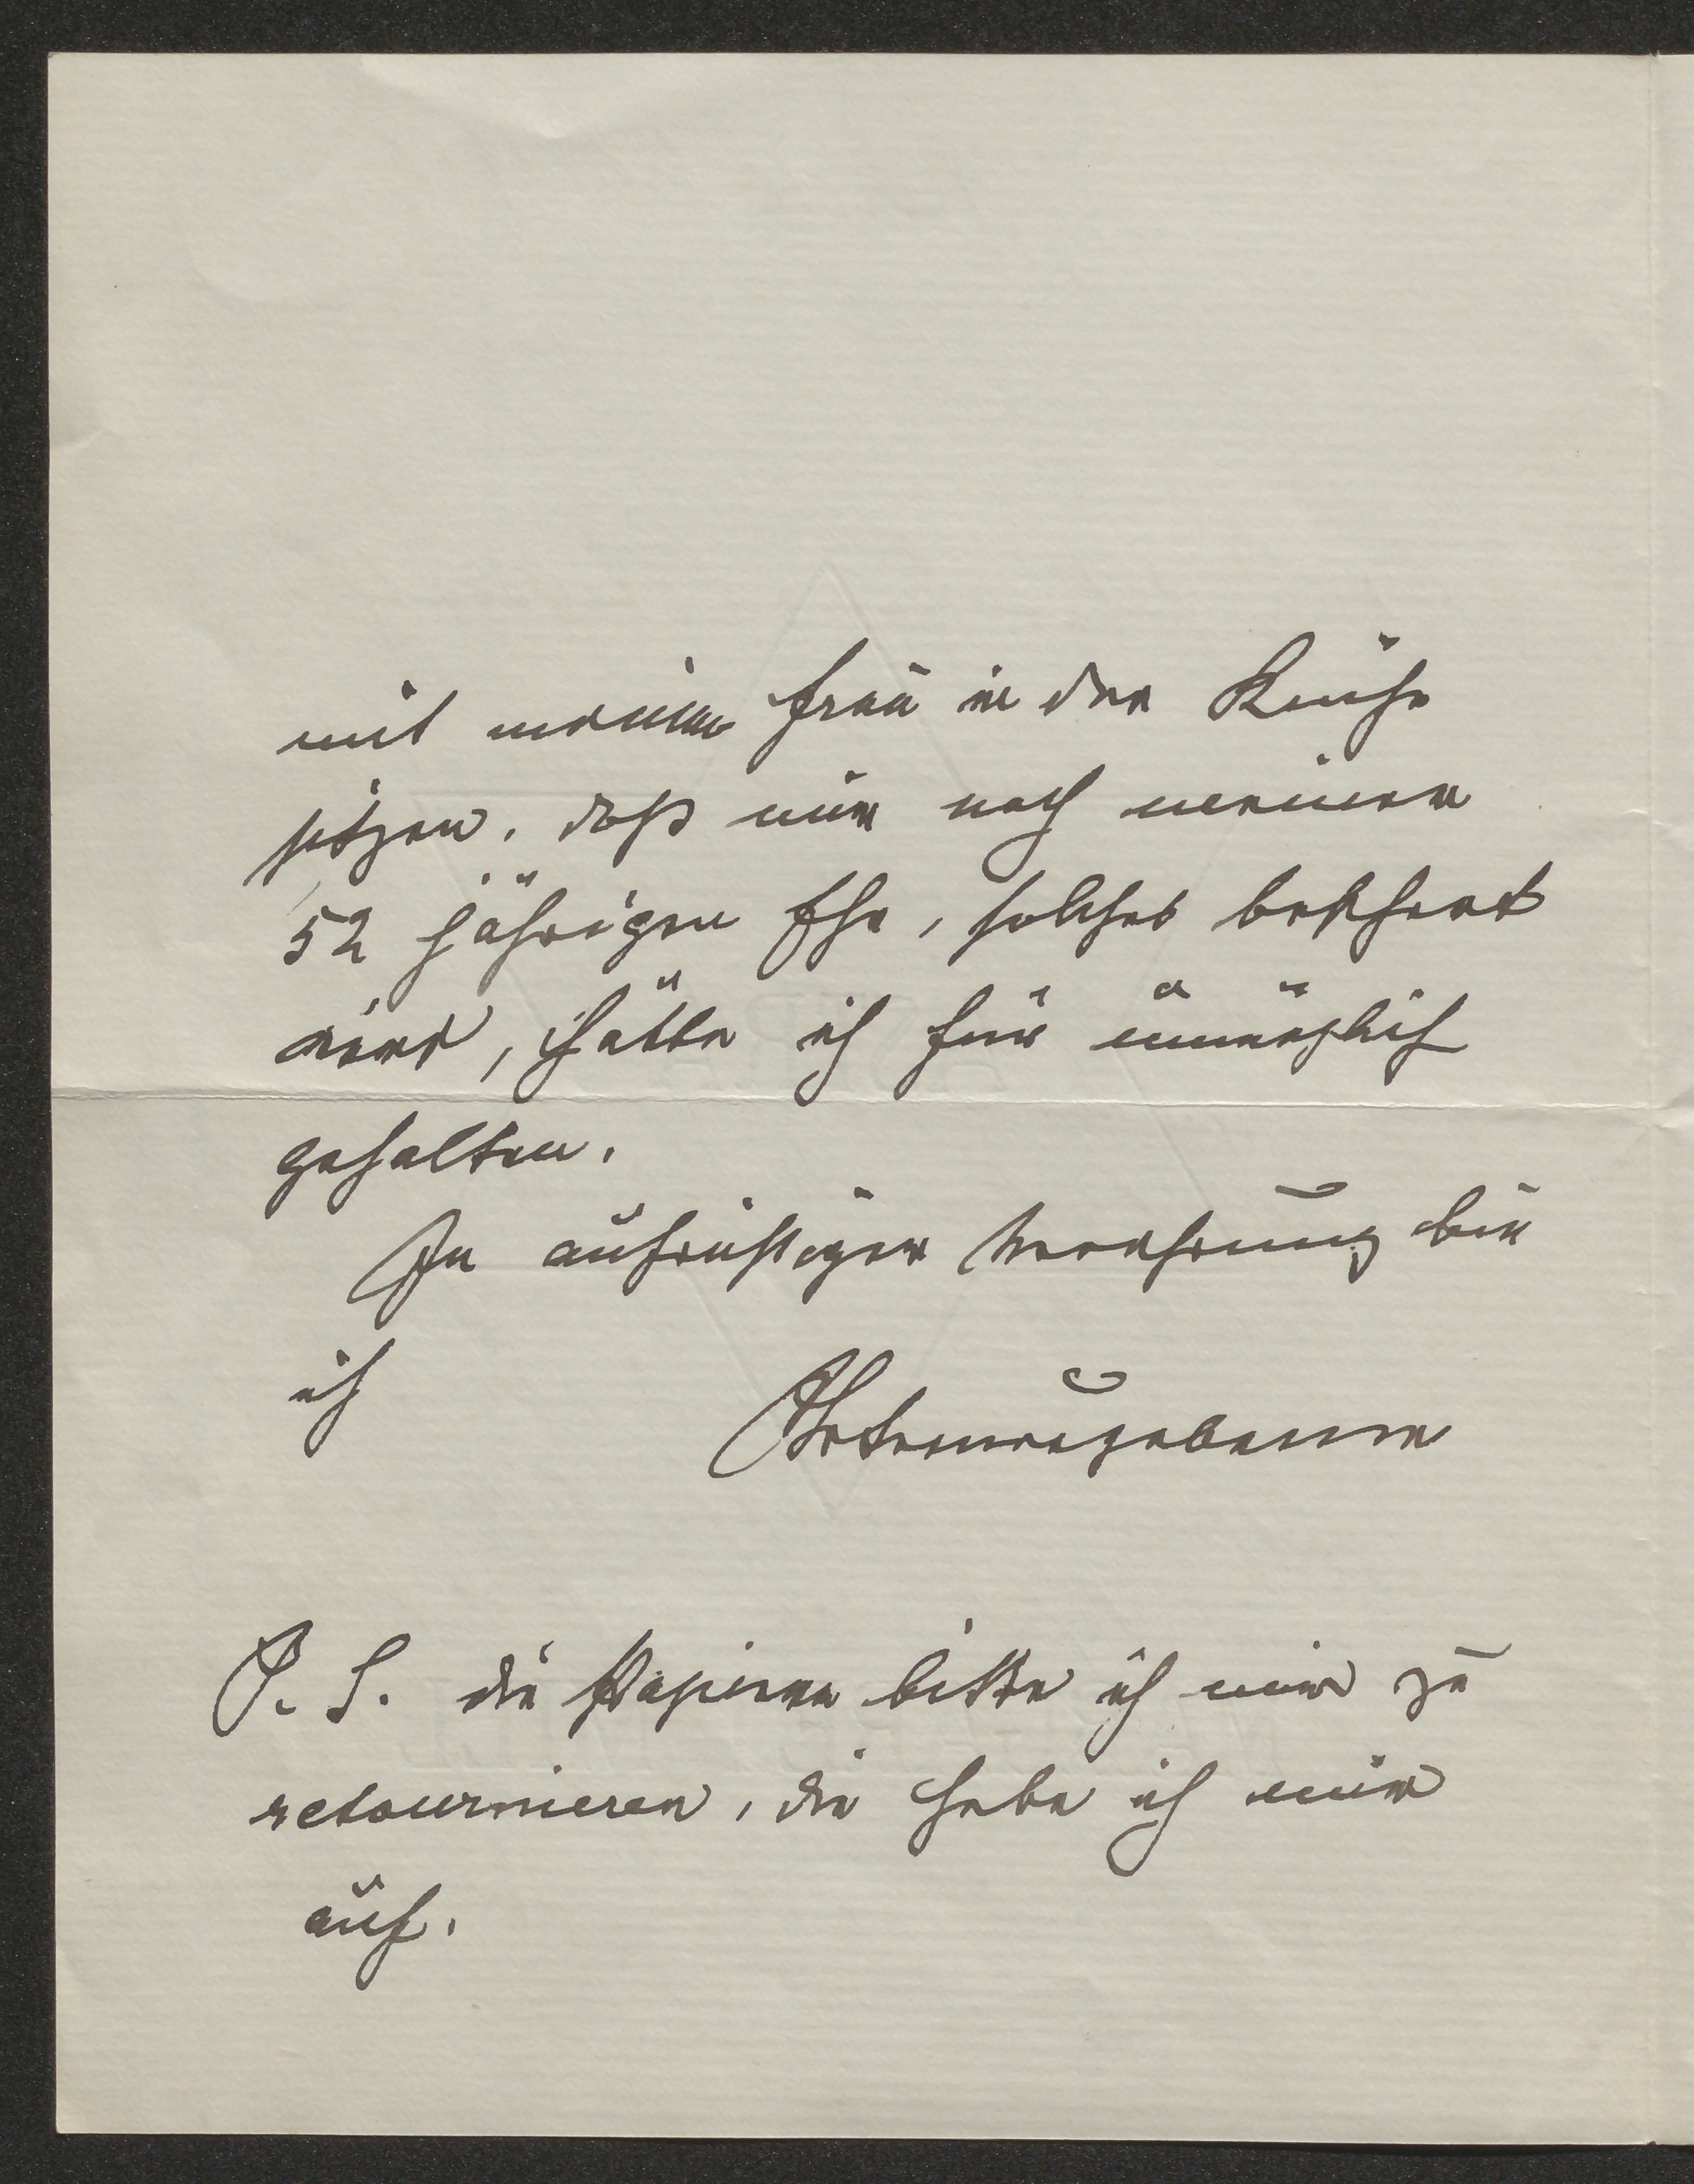 mit meiner Frau in der Küche
sitzen. daß mir nach meiner
52 jährigen Ehe, solches beschert
wird, hätte ich für unmöglich
gehalten.
In aufrichtiger Verehrung bin
ich
P. S. die Papiere bitte ich mir zu
retournieren, die hebe ich mir
auf.